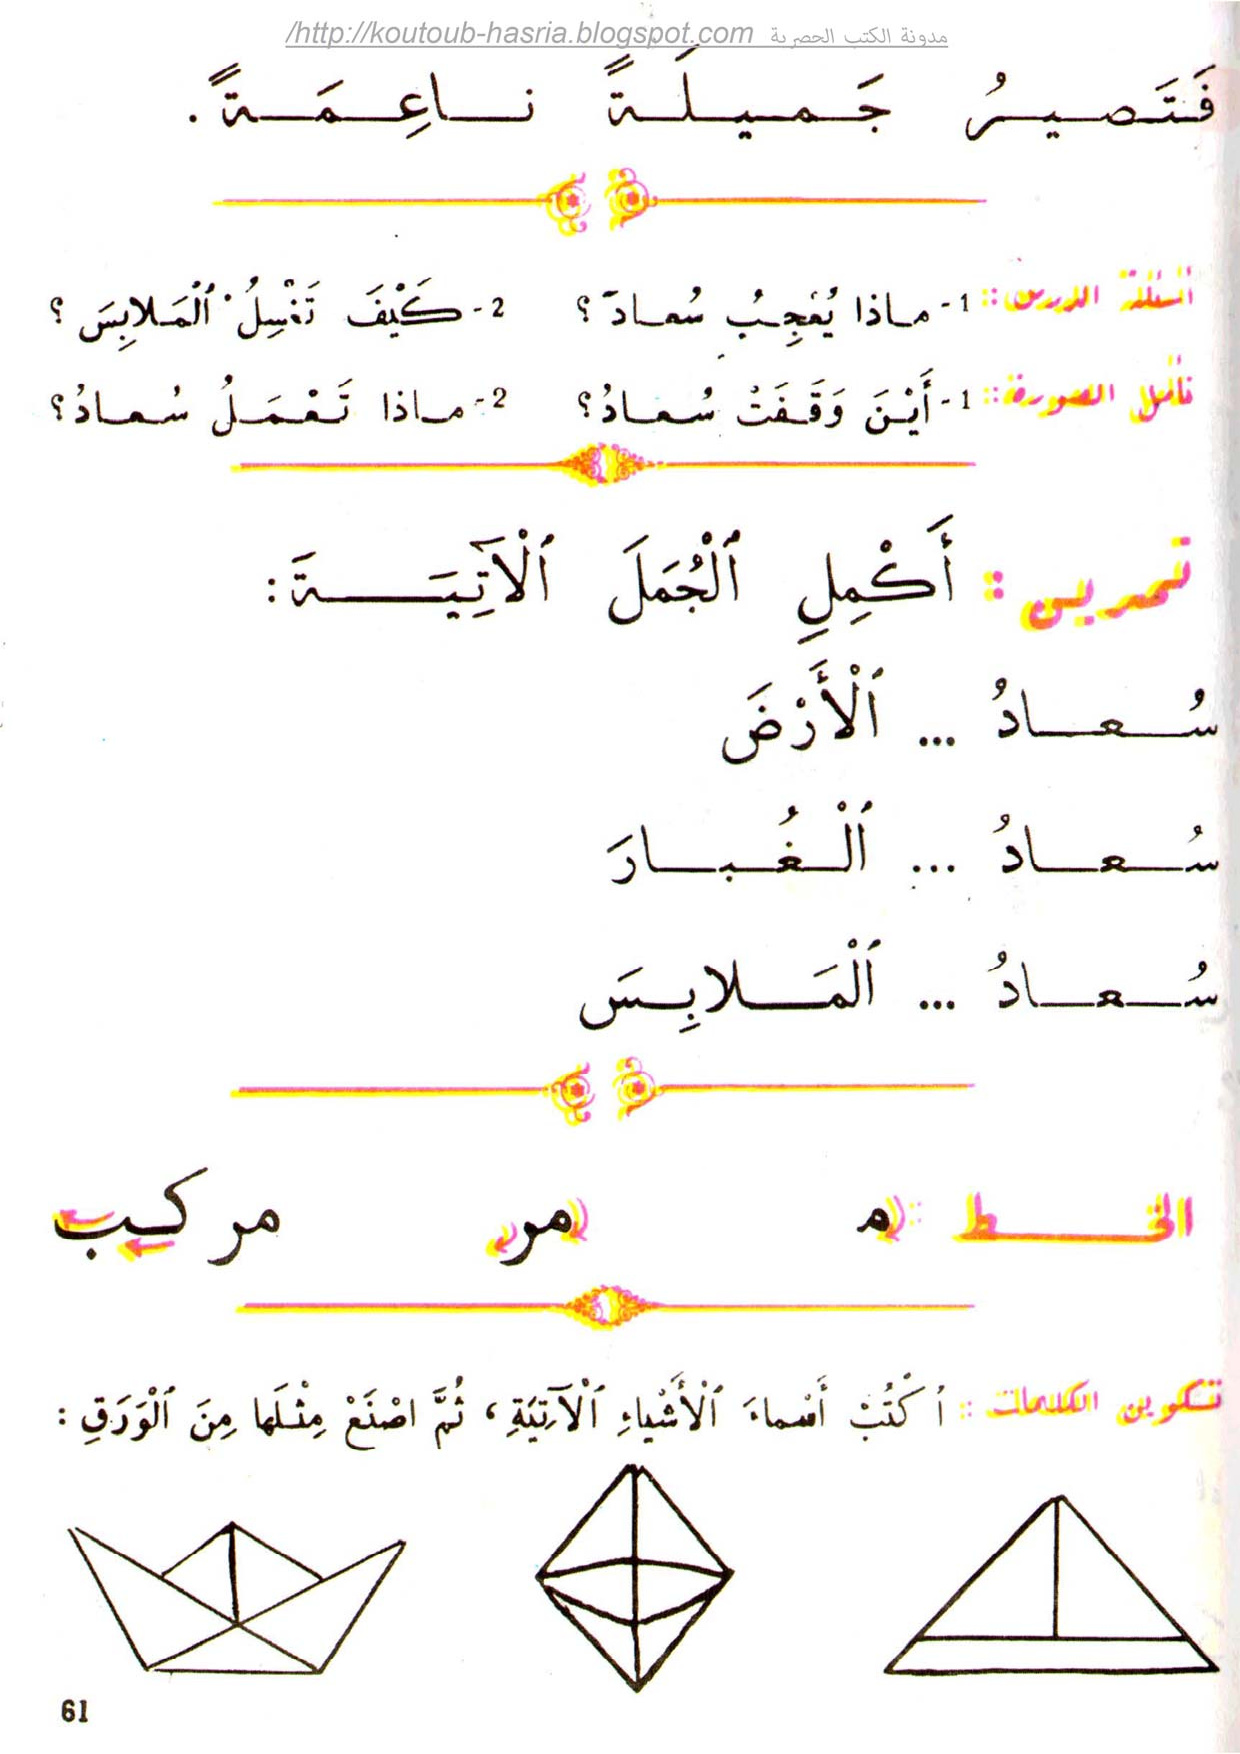 http://koutoub-hasria.blogspot.com/ مدونة الكتب الحصرية
فَتَصيرُ جَميلَةً ناعِمَةً.
أسئلة الدرس: 1- ماذا يُعْجِبُ سُعادَ؟ 2- كَيْفَ تَغْسِلُ ٱلْمَلابِسَ؟
تأمل الصورة: 1- أَيْنَ وَقَفَتْ سُعادُ؟ 2- ماذا تَعْمَلُ سُعادُ؟
تمرين: أَكْمِلِ ٱلْجُمَلَ ٱلْآتِيَةَ:
سُعادُ ... ٱلْأَرْضَ
سُعادُ ... ٱلْغُبارَ
سُعادُ ... ٱلْمَلابِسَ
الخط: م مر مركب
تكوين الكلمات: اُكْتُبْ أَسْماءَ ٱلْأَشْياءِ ٱلْآتِيَةِ، ثُمَّ اصْنَعْ مِثْلَها مِنَ ٱلْوَرَقِ:
61